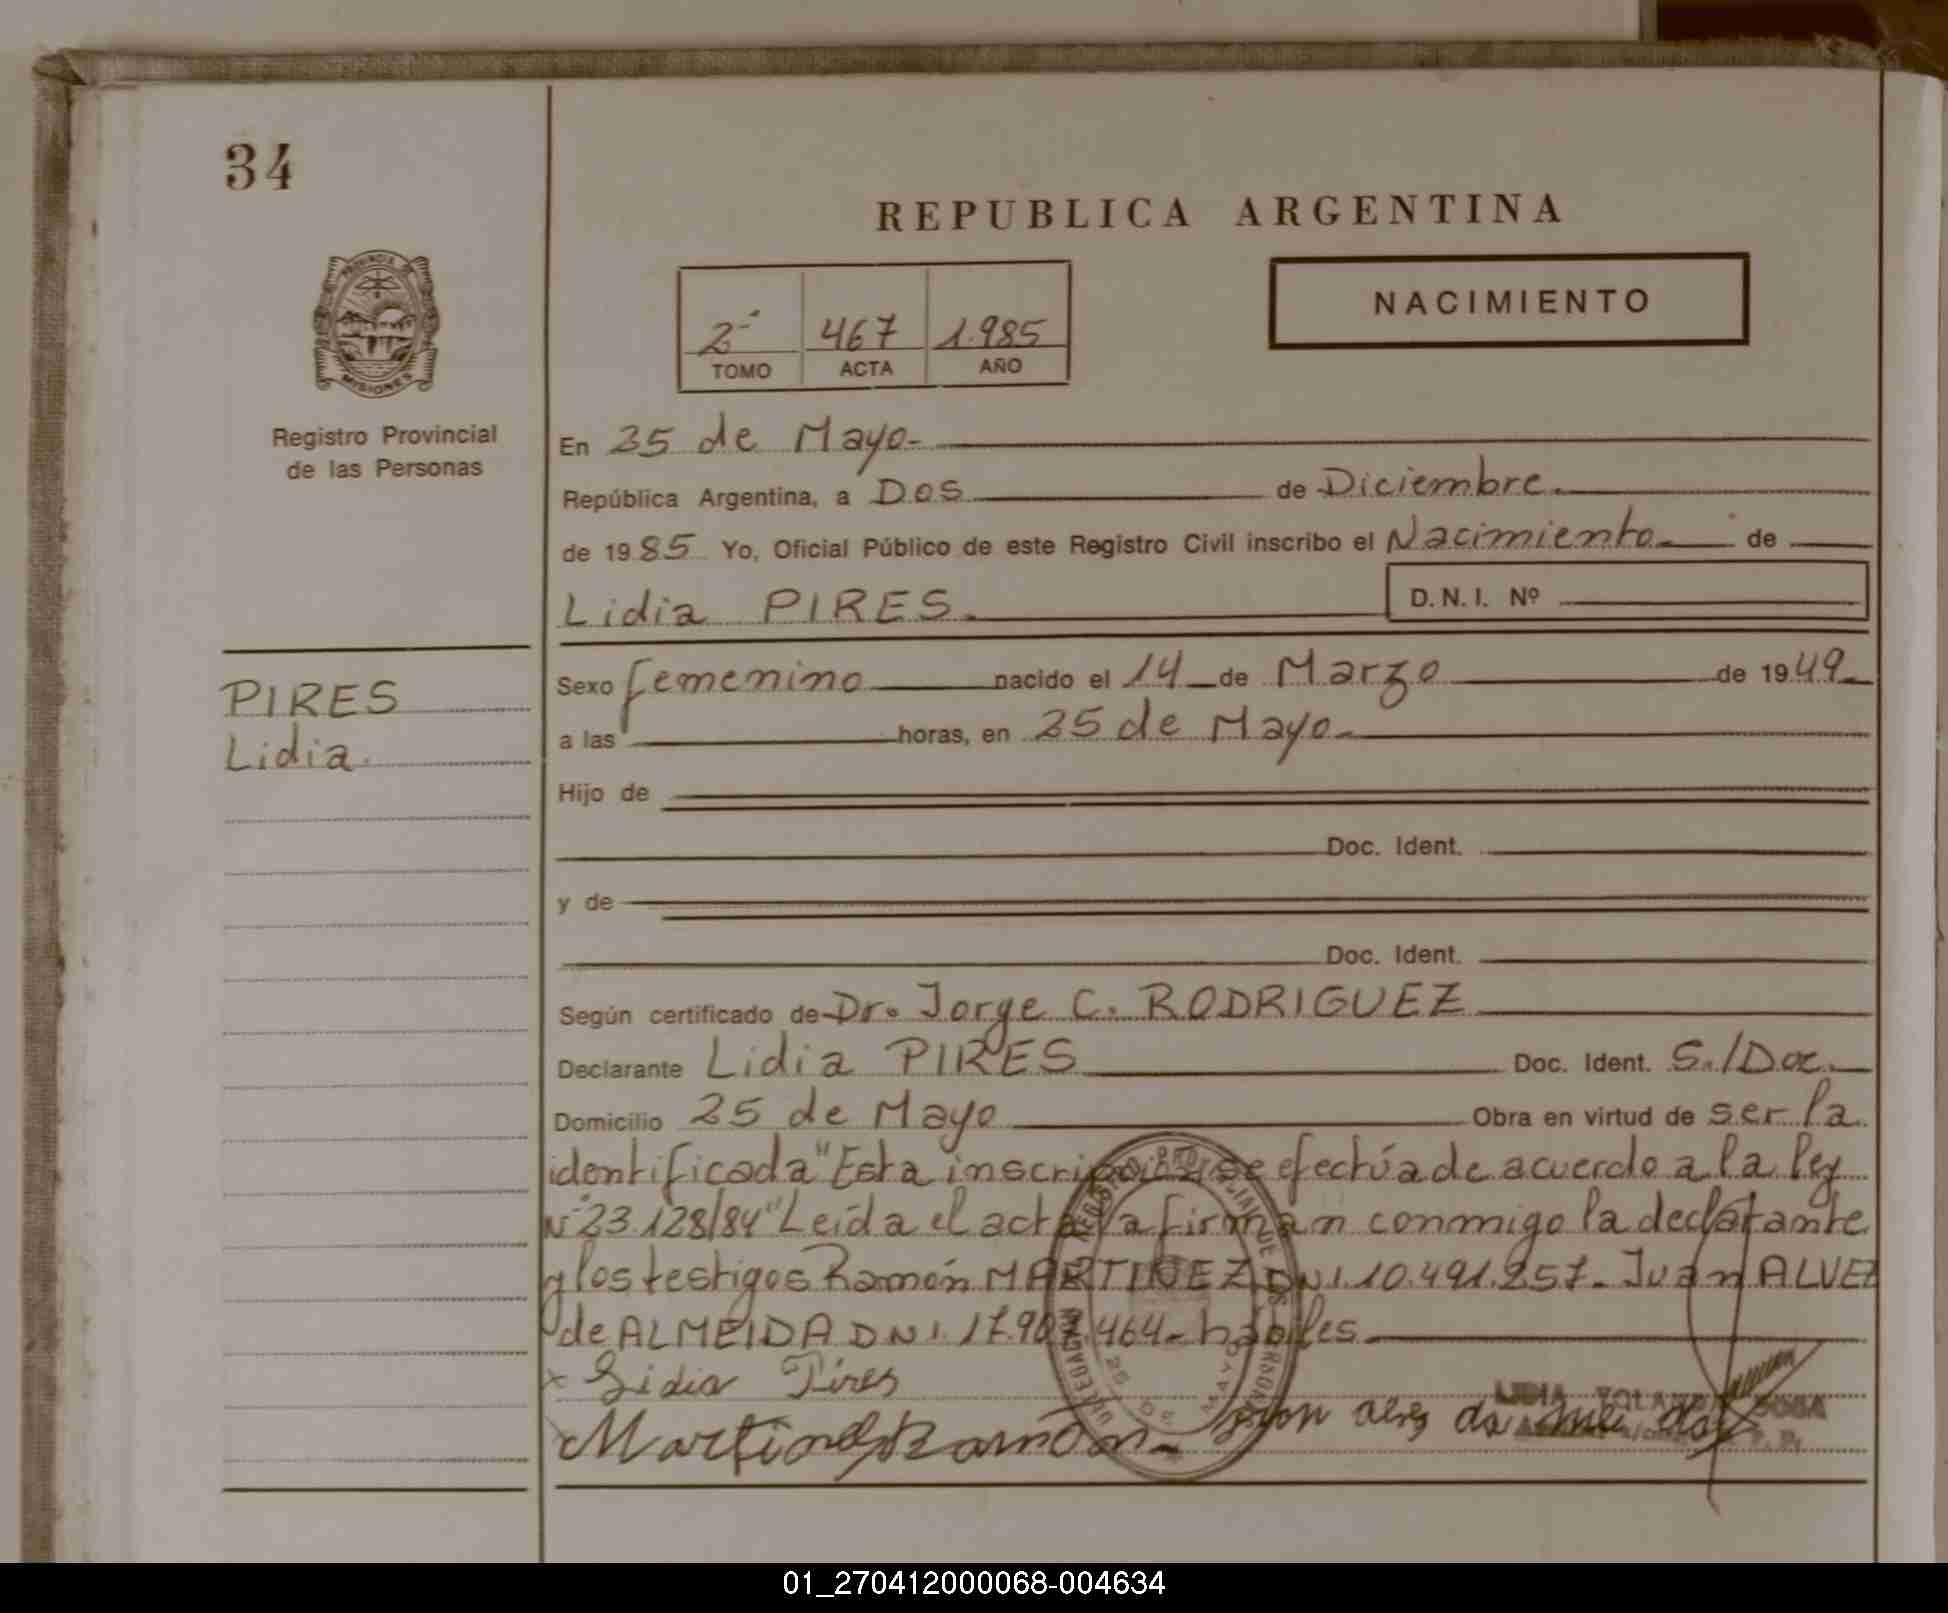 34
REPUBLICA ARGENTINA
NACIMIENTO
2º 467 1.985
TOMO ACTA AÑO
PROVINCIA DE
MISIONES
Registro Provincial
de las Personas
En 25 de Mayo.
República Argentina, a Dos de Diciembre.
de 1985 Yo, Oficial Público de este Registro Civil inscribo el Nacimiento de
Lidia PIRES. D.N.I. Nº
PIRES
Lidia.
Sexo femenino nacido el 14 de Marzo de 1949
a las horas, en 25 de Mayo.
Hijo de
Doc. Ident.
y de
Doc. Ident.
Según certificado de Dr. Jorge C. RODRIGUEZ
Declarante Lidia PIRES Doc. Ident. S./Doc.
Domicilio 25 de Mayo Obra en virtud de ser la
identificada "Esta inscripción se efectúa de acuerdo a la ley
Nº 23.128/84" Leída el acta la firman conmigo la declarante
y los testigos Ramón MARTINEZ DNI. 10.491.257. Juan ALVEZ
de ALMEIDA DNI. 17.907.464 - hábiles.
x Lidia Pires
Martinez Ramón
LIDIA YOLANDA SOSA
25 DE MAYO
01_270412000068-004634